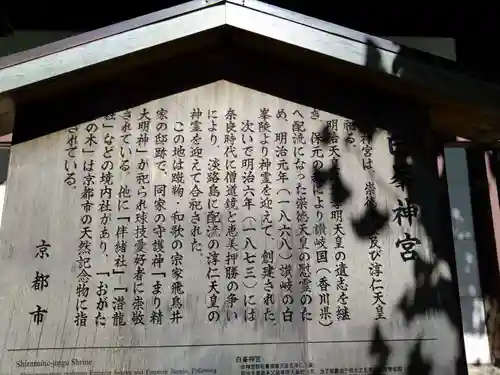 白峯神宮
神宮は、崇徳天皇及び淳仁天皇
祀る。
明治天皇が、孝明天皇の遺志を継
き、保元の乱により讃岐国(香川県)
へ配流になった崇徳天皇の慰霊のた
め、明治元年(一八六八)讃岐の白
峯陵より神霊を迎えて、創建された
次いで明治六年(一八七三)には
奈良時代に僧道鏡と恵美押勝の争い
により、淡路島に配流の淳仁天皇の
神霊を迎えて合祀された。
この地は蹴鞠・和歌の宗家飛鳥井
家の邸跡で、同家の守護神「まり精
大明神」が祀られ球技愛好者に崇敬
されている。他に「伴緒社」「潜龍
社」などの境内社があり、「おがた
の木」は京都市の天然記念物に指
されている。
京都市
Shiramine-jingu Shrine
白峯神宮